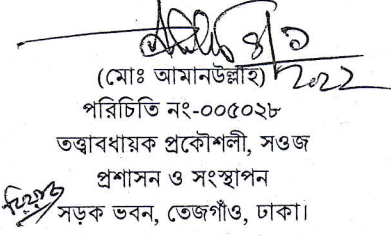 ৪/১
২০২২
(মোঃ আমানউল্লাহ)
পরিচিতি নং-০০৫০২৮
তত্ত্বাবধায়ক প্রকৌশলী, সওজ
প্রশাসন ও সংস্থাপন
সড়ক ভবন, তেজগাঁও, ঢাকা।